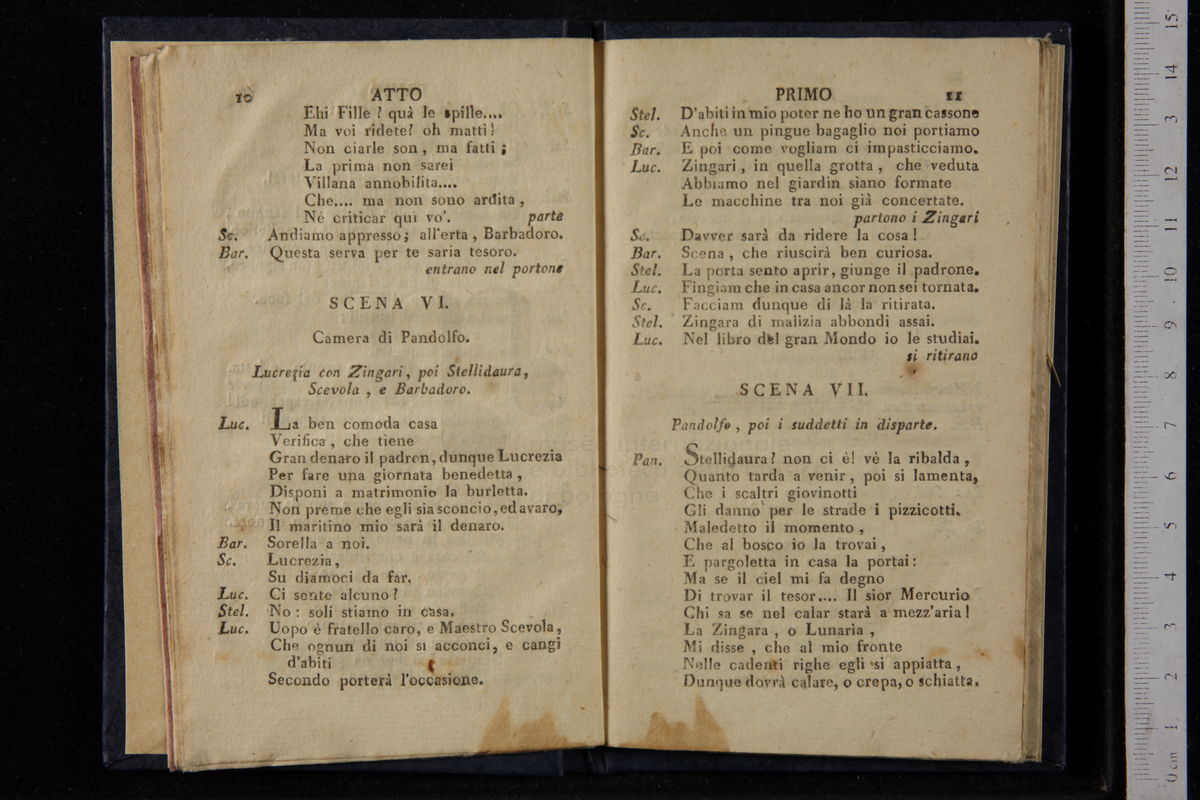 10 ATTO
Ehi Fille ? quà le spille....
Ma voi ridete? oh matti!
Non ciarle son, ma fatti ;
La prima non sarei
Villana annobilita....
Che.... ma non sono ardita ,
Nè criticar qui vo'. parte
Sc. Andiamo appresso; all'erta , Barbadoro.
Bar. Questa serva per te saria tesoro.
entrano nel portone
SCENA VI.
Camera di Pandolfo.
Lucrezia con Zingari, poi Stellidaura,
Scevola , e Barbadoro.
Luc. La ben comoda casa
Verifica , che tiene
Gran denaro il padron, dunque Lucrezia
Per fare una giornata benedetta ,
Disponi a matrimonio la burletta.
Non preme che egli sia sconcio, ed avaro,
Il maritino mio sarà il denaro.
Bar. Sorella a noi.
Sc. Lucrezia,
Su diamoci da far.
Luc. Ci sente alcuno ?
Stel. No : soli stiamo in casa.
Luc. Uopo è fratello caro, e Maestro Scevola,
Che ognun di noi si acconci, e cangi
d'abiti
Secondo porterà l'occasione.
PRIMO 11
Stel. D'abiti in mio poter ne ho un gran cassone
Sc. Anche un pingue bagaglio noi portiamo
Bar. E poi come vogliam ci impasticciamo.
Luc. Zingari , in quella grotta , che veduta
Abbiamo nel giardin siano formate
Le macchine tra noi già concertate.
partono i Zingari
Sc. Davver sarà da ridere la cosa !
Bar. Scena , che riuscirà ben curiosa.
Stel. La porta sento aprir, giunge il padrone.
Luc. Fingiam che in casa ancor non sei tornata.
Sc. Facciam dunque di là la ritirata.
Stel. Zingara di malizia abbondi assai.
Luc. Nel libro del gran Mondo io le studiai.
si ritirano
SCENA VII.
Pandolfo , poi i suddetti in disparte.
Pan. Stellidaura? non ci è! vè la ribalda ,
Quanto tarda a venir, poi si lamenta,
Che i scaltri giovinotti
Gli danno per le strade i pizzicotti.
Maledetto il momento ,
Che al bosco io la trovai ,
E pargoletta in casa la portai:
Ma se il ciel mi fa degno
Di trovar il tesor.... Il sior Mercurio
Chi sa se nel calar starà a mezz'aria!
La Zingara , o Lunaria ,
Mi disse , che al mio fronte
Nelle cadenti righe egli si appiatta ,
Dunque dovrà calare, o crepa, o schiatta.
0 cm 1 2 3 4 5 6 7 8 9 10 11 12 13 14 15